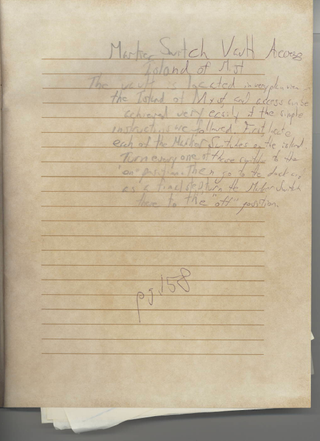 Marker Switch Vault Access
Island of Myst
The vault is located in very plain view on
the island of Myst, and access can be
achieved very easily if the simple
instructions are followed. First, locate
each of the Marker Switches on the island
Turn every one of these switches to the
"on" position. Then go to the dock and,
as a final step, turn the Marker Switch
there to the "off" position.
pg. 158